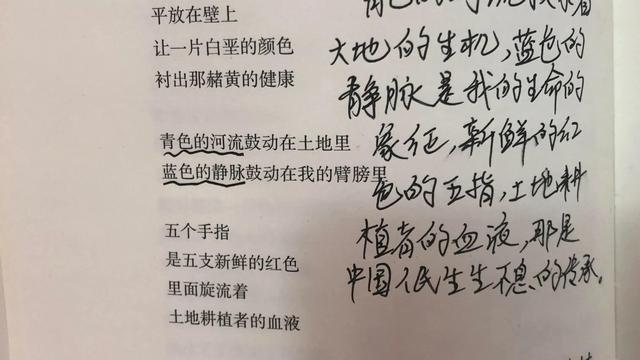 平放在壁上
让一片白垩的颜色
衬出那赭黄的健康
青色的河流鼓动在土地里
蓝色的静脉鼓动在我的臂膀里
五个手指
是五支新鲜的红色
里面旋流着
土地耕植者的血液
大地的生机，蓝色的
静脉是我的生命的
象征，新鲜的红
色的五指，土地耕
植者的血液，那是
中国人民生生不息的传承。